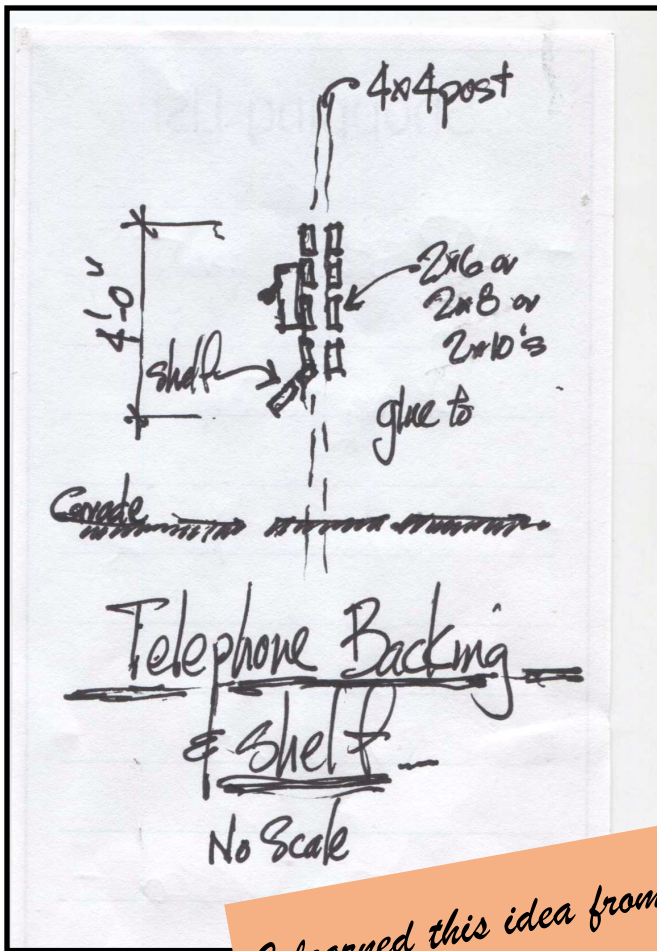 4x4 post
2x6 or
2x8 or
2x10's
4'-0"
shelf
glue to
Telephone Backing
& Shelf
No Scale
I learned this idea from